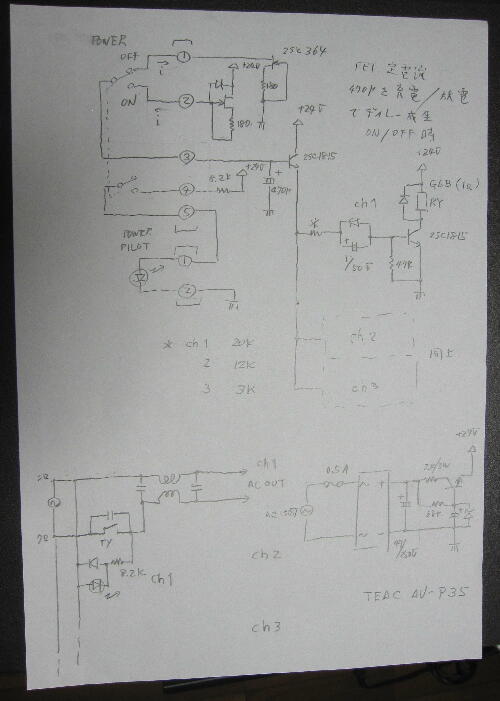 POWER
OFF
ON
i
i
1
2
3
4
5
2SK 364
+24V
180
180
+24V
+24V
8.2K
470μ
2SC1815
FET 定電流
470μを充電/放電
でディレー成生
ON/OFF時
+24V
G6B (12)
RY
2SC1815
47K
ch1
*
1/50V
POWER
PILOT
1
2
* ch1 20K
2 12K
3 3K
ch2
ch3
同上
ch1
AC OUT
RY
8.2K
ch1
ch2
ch3
0.5A
AC 100V
+24V
TEAC AV-P35